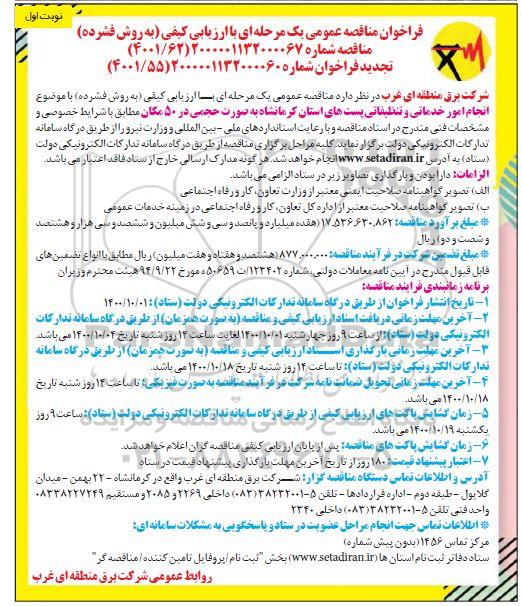 نوبت اول
فراخوان مناقصه عمومی یک مرحله ای با ارزیابی کیفی (به روش فشرده)
مناقصه شماره ۲۰۰۰۰۰۱۱۳۲۰۰۰۰۶۷ (۴۰۰۱/۶۲)
تجدید فراخوان شماره ۲۰۰۰۰۰۱۱۳۲۰۰۰۰۶۰ (۴۰۰۱/۵۵)
شرکت برق منطقه ای غرب در نظر دارد مناقصه عمومی یک مرحله ای با ارزیابی کیفی (به روش فشرده) با موضوع
انجام امور خدماتی و تنظیفاتی پست های استان کرمانشاه به صورت حجمی در ۵۰ مکان مطابق با شرایط خصوصی و
مشخصات فنی مندرج در اسناد مناقصه و با رعایت استانداردهای ملی - بین المللی و وزارت نیرو را از طریق درگاه سامانه
تدارکات الکترونیکی دولت برگزار نماید. کلیه مراحل برگزاری مناقصه از طریق درگاه سامانه تدارکات الکترونیکی دولت
(ستاد) به آدرس www.setadiran.ir انجام خواهد شد. هر گونه مدارک ارسالی خارج از ستاد فاقد اعتبار می باشد.
الزامات: دارا بودن و بارگذاری تصاویر زیر در ستاد الزامی می باشد.
الف) تصویر گواهینامه صلاحیت ایمنی معتبر از وزارت تعاون، کار و رفاه اجتماعی
ب) تصویر گواهینامه صلاحیت معتبر از اداره کل تعاون، کار و رفاه اجتماعی در زمینه خدمات عمومی
* مبلغ برآورد مناقصه: ۱۷,۵۳۶,۶۳۰,۸۶۲ (هفده میلیارد و پانصد و سی و شش میلیون و ششصد و سی هزار و هشتصد
و شصت و دو) ریال
* مبلغ تضمین شرکت در فرآیند مناقصه: ۸۷۷,۰۰۰,۰۰۰ (هشتصد و هفتاد و هفت میلیون) ریال مطابق با انواع تضمین های
قابل قبول مندرج در آیین نامه معاملات دولتی، شماره ۱۲۳۴۰۲/ت۵۰۶۵۹ ه مورخ ۹۴/۹/۲۲ هیئت محترم وزیران
برنامه زمانبندی فرایند مناقصه:
۱- تاریخ انتشار فراخوان از طریق درگاه سامانه تدارکات الکترونیکی دولت (ستاد): ۱۴۰۰/۱۰/۰۱
۲- آخرین مهلت زمانی دریافت اسناد ارزیابی کیفی و مناقصه (به صورت همزمان) از طریق درگاه سامانه تدارکات
الکترونیکی دولت (ستاد): از ساعت ۹ روز چهارشنبه ۱۴۰۰/۱۰/۰۱ لغایت ساعت ۱۴ روز شنبه تاریخ ۱۴۰۰/۱۰/۰۴ می باشد.
۳- آخرین مهلت زمانی بارگذاری اسناد ارزیابی کیفی و مناقصه (به صورت همزمان) از طریق درگاه سامانه
تدارکات الکترونیکی دولت (ستاد): تا ساعت ۱۴ روز شنبه تاریخ ۱۴۰۰/۱۰/۱۸ می باشد.
۴- آخرین مهلت زمانی تحویل ضمانت نامه شرکت در فرآیند مناقصه به صورت فیزیکی: تا ساعت ۱۴ روز شنبه تاریخ
۱۴۰۰/۱۰/۱۸ می باشد.
۵- زمان گشایش پاکت های ارزیابی کیفی از طریق درگاه سامانه تدارکات الکترونیکی دولت (ستاد): ساعت ۹ روز
یکشنبه ۱۴۰۰/۱۰/۱۹ می باشد.
۶- زمان گشایش پاکت های مناقصه: پس از پایان ارزیابی کیفی مناقصه گران اعلام خواهد شد.
۷- اعتبار پیشنهاد قیمت: ۱۸۰ روز از تاریخ آخرین مهلت بارگذاری پیشنهاد قیمت در ستاد
آدرس و اطلاعات تماس دستگاه مناقصه گزار: شرکت برق منطقه ای غرب واقع در کرمانشاه - ۲۲ بهمن - میدان
گلایول - طبقه دوم - اداره قراردادها - تلفن ۵-۳۸۲۳۲۰۰۱ (۰۸۳) داخلی ۲۲۶۹ و ۲۰۸۵ و مستقیم ۰۸۳۳۸۲۲۷۲۴۹
واحد فنی تلفن ۵-۳۸۲۳۲۰۰۱ (۰۸۳) داخلی ۲۳۴۰
* اطلاعات تماس جهت انجام مراحل عضویت در ستاد و پاسخگویی به مشکلات سامانه ای:
مرکز تماس ۱۴۵۶ (بدون پیش شماره)
ستاد دفاتر ثبت نام استان ها (www.setadiran.ir) بخش "ثبت نام/پروفایل تامین کننده/مناقصه گر"
روابط عمومی شرکت برق منطقه ای غرب